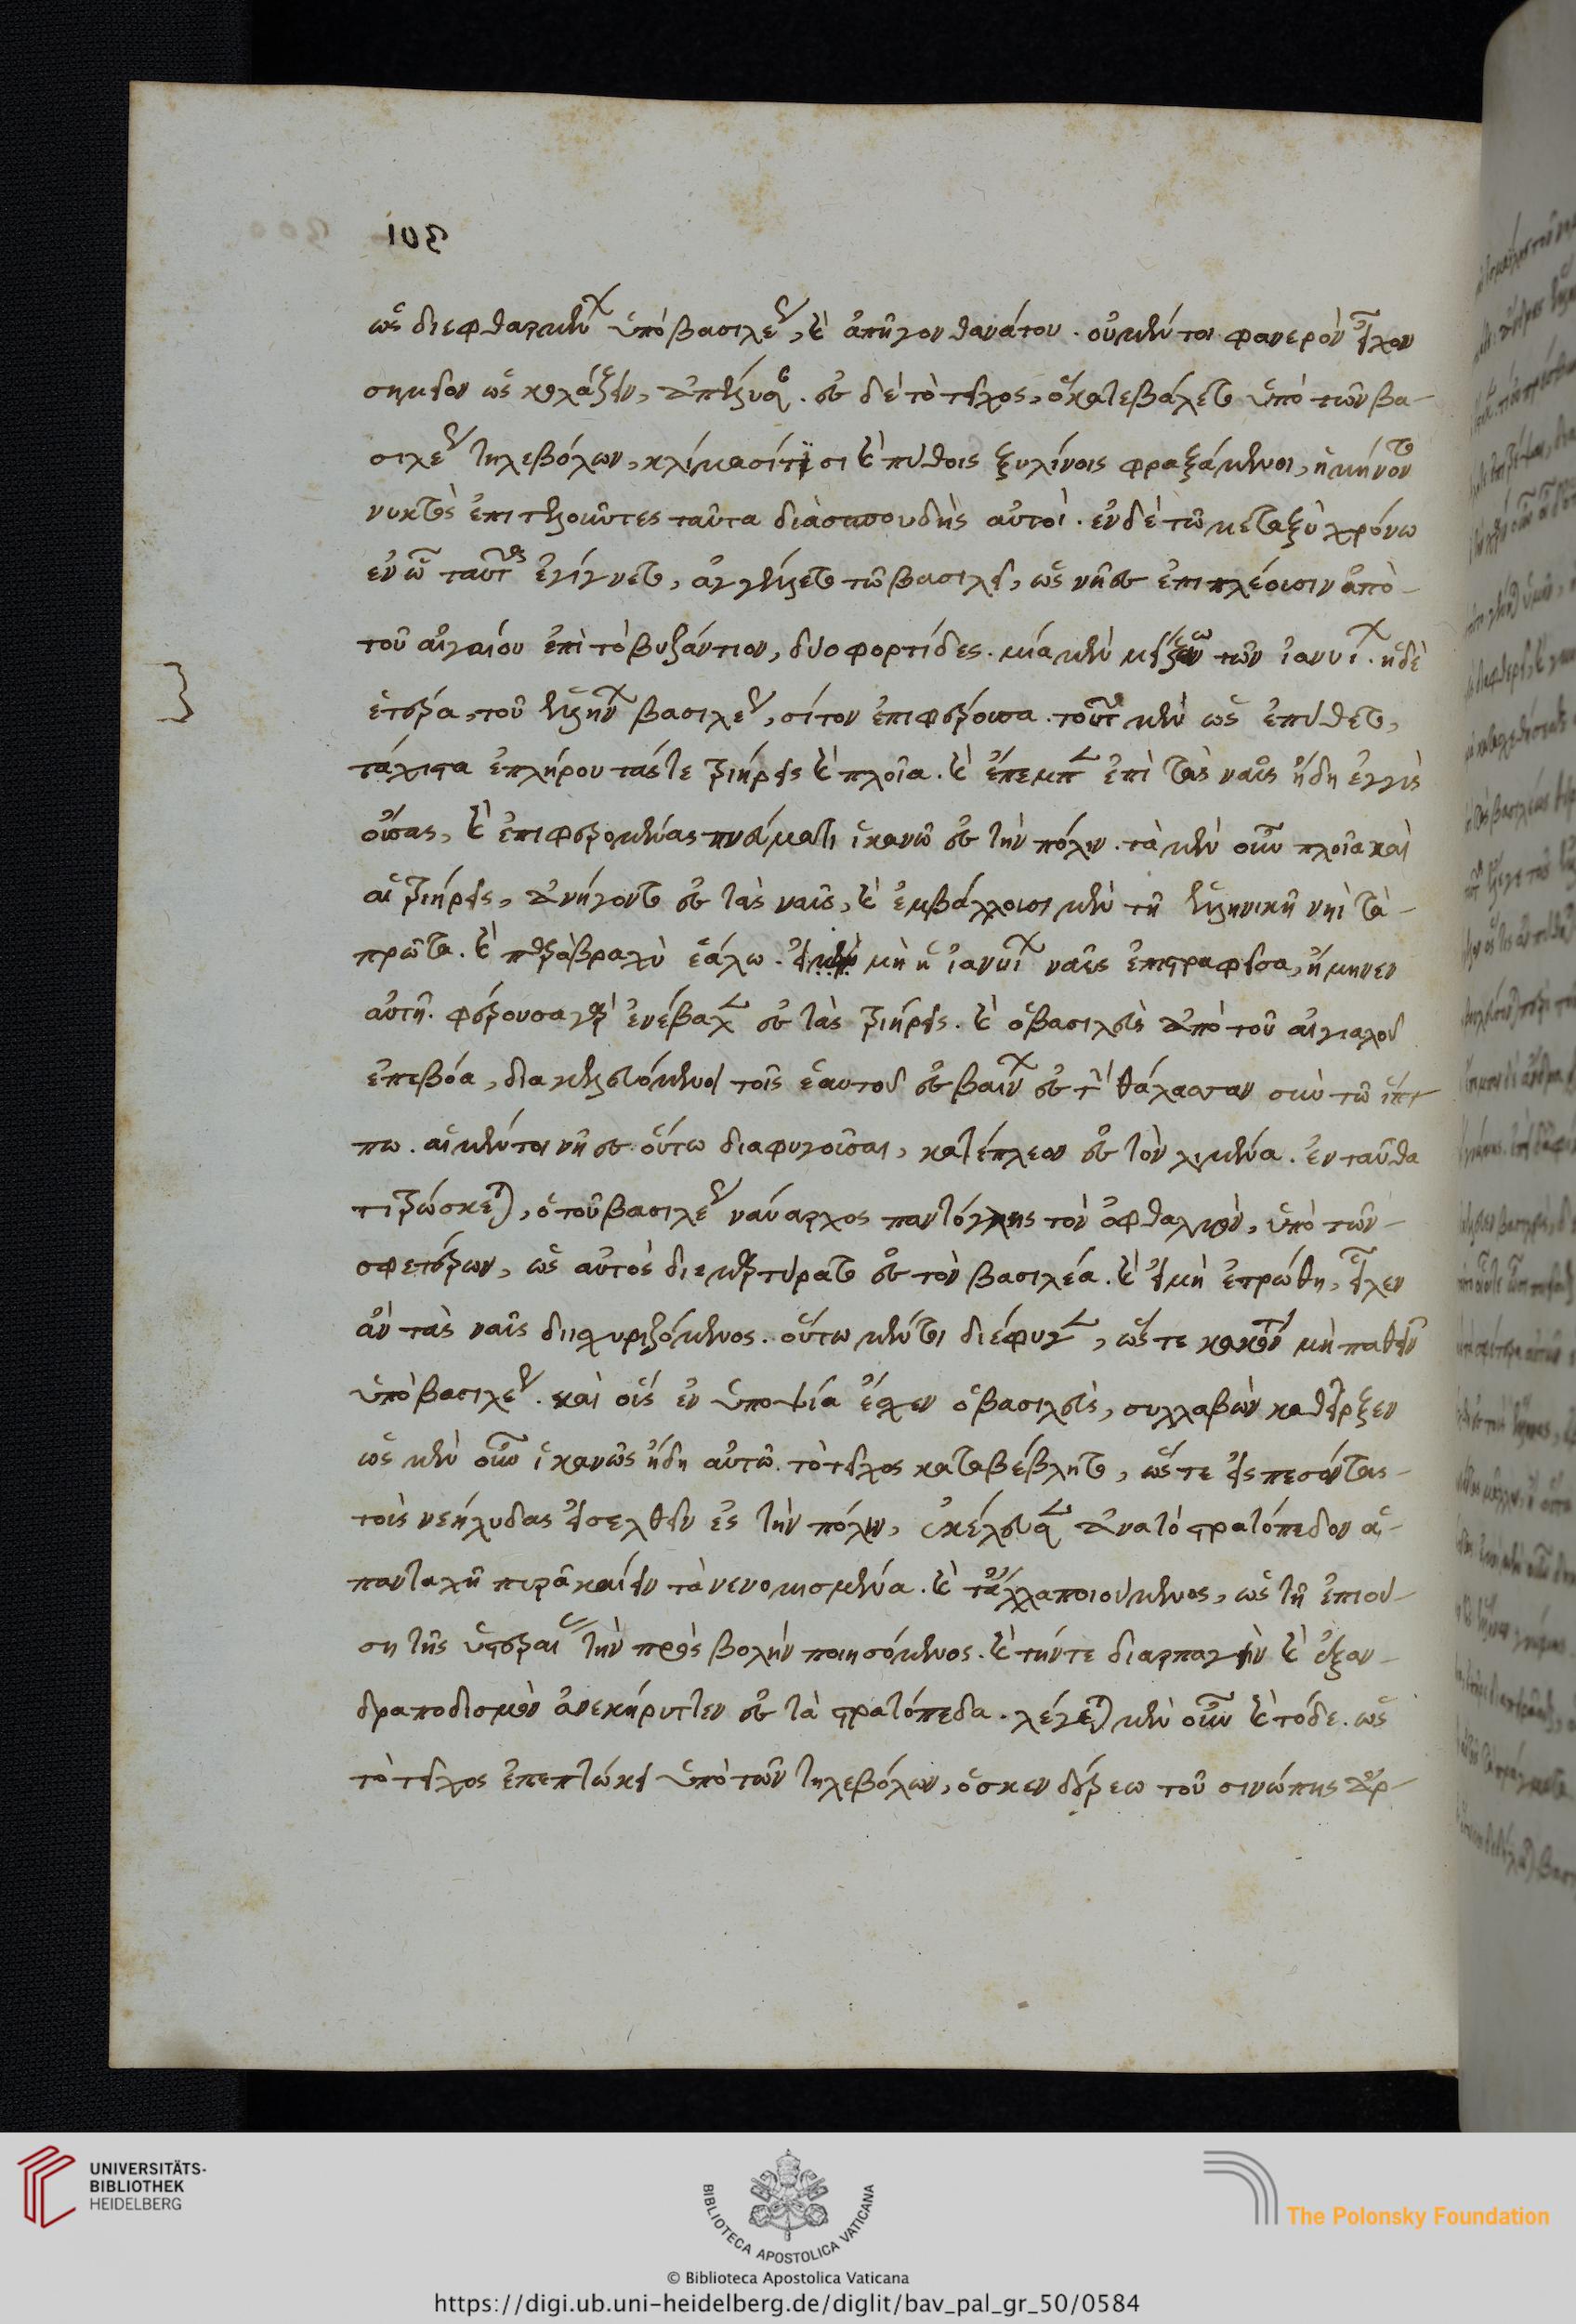 301
ὡς διεφθαρμένους ὑπὸ βασιλέως, καὶ ἀπῆγον θανάτου. οὐ μέντοι φανερὸν εἶχον
σημεῖον ὡς κολάζειν, ἀπέλυσαν. ἐς δὲ τὸ τεῖχος, ὃ κατεβάλετο ὑπὸ τῶν βα-
σιλέως τηλεβόλων, κλίμασί τισι καὶ πίθοις ξυλίνοις φραξάμενοι, ἠμύνοντο
νυκτὸς ἐπιτελοῦντες ταῦτα διὰ σπουδῆς αὐτοί. ἐν δὲ τῷ μεταξὺ χρόνῳ
ἐν ᾧ ταῦτα ἐγίγνετο, ἀγγέλλεται τῷ βασιλεῖ, ὡς νῆες ἐπιπλέουσιν ἀπὸ
τοῦ αἰγαίου ἐπὶ τὸ βυζάντιον, δύο φορτίδες. μία μὲν μείζων τῶν ἰανυΐων. ἡ δὲ
ἑτέρα, τοῦ ἑλλήνων βασιλέως, σῖτον ἐπιφέρουσα. τοῦτο μὲν ὡς ἐπύθετο,
τάχιστα ἐπλήρου τάς τε τριήρεις καὶ πλοῖα. καὶ ἔπεμπεν ἐπὶ τὰς ναῦς ἤδη ἐγγὺς
οὔσας, καὶ ἐπιφερομένας πνεύματι ἱκανῷ ἐς τὴν πόλιν. τὰ μὲν οὖν πλοῖα καὶ
αἱ τριήρεις, ἀνήγοντο ἐς τὰς ναῦς, καὶ ἐμβάλλουσι μὲν τῇ ἑλληνικῇ νηῒ τὰ
πρῶτα. καὶ παρὰ βραχὺ ἑάλω. εἰ μὴ ἡ ἰανυΐων ναῦς ἐπιστραφεῖσα, ἤμυνεν
αὐτῇ. φέρουσα γὰρ ἐνέβαλεν ἐς τὰς τριήρεις. καὶ ὁ βασιλεὺς ἀπὸ τοῦ αἰγιαλοῦ
ἐπεβόα, διακελευόμενος τοῖς ἑαυτοῦ ἐσβαίνων ἐς τὴν θάλασσαν σὺν τῷ ἵπ-
πῳ. αἱ μέντοι νῆες οὕτω διαφυγοῦσαι, κατέπλεον ἐς τὸν λιμένα. ἐνταῦθα
τιτρώσκεται, ὁ τοῦ βασιλέως ναύαρχος παντόγλης τὸν ὀφθαλμόν, ὑπὸ τῶν
σφετέρων, ὡς αὐτὸς διεμαρτύρατο ἐς τὸν βασιλέα. καὶ εἰ μὴ ἐτρώθη, εἷλεν
ἂν τὰς ναῦς διϊσχυριζόμενος. οὕτω μέντοι διέφυγεν, ὥστε κακόν τι μὴ παθεῖν
ὑπὸ βασιλέως. καὶ οἷς ἐν ὑποψίᾳ ἔσχεν ὁ βασιλεύς, συλλαβὼν καθεῖρξεν
ὡς μὲν οὖν ἱκανῶς ἤδη αὐτῷ τὸ τεῖχος καταβέβλητο, ὥστε εἰσπεσόντας
τοὺς νεήλυδας εἰσελθεῖν ἐς τὴν πόλιν, ἐκέλευσεν ἀνὰ τὸ στρατόπεδον ἁ-
πανταχῇ πυρὰ καίειν τὰ νενομισμένα. καὶ τἄλλα ποιούμενος, ὡς τῇ ἐπιού-
σῃ τῆς ὑστεραίας τὴν προσβολὴν ποιησόμενος. καὶ τήν τε διαρπαγὴν καὶ ἐξαν-
δραποδισμὸν ἀνεκήρυττεν ἐς τὰ στρατόπεδα. λέγεται μὲν οὖν καὶ τόδε. ὡς
τὸ τεῖχος ἐπεπτώκει ὑπὸ τῶν τηλεβόλων, ὁ σκενδέρεω τοῦ σινώπης ἄρ-
UNIVERSITÄTS-
BIBLIOTHEK
HEIDELBERG
BIBLIOTECA APOSTOLICA VATICANA
The Polonsky Foundation
© Biblioteca Apostolica Vaticana
https://digi.ub.uni-heidelberg.de/diglit/bav_pal_gr_50/0584